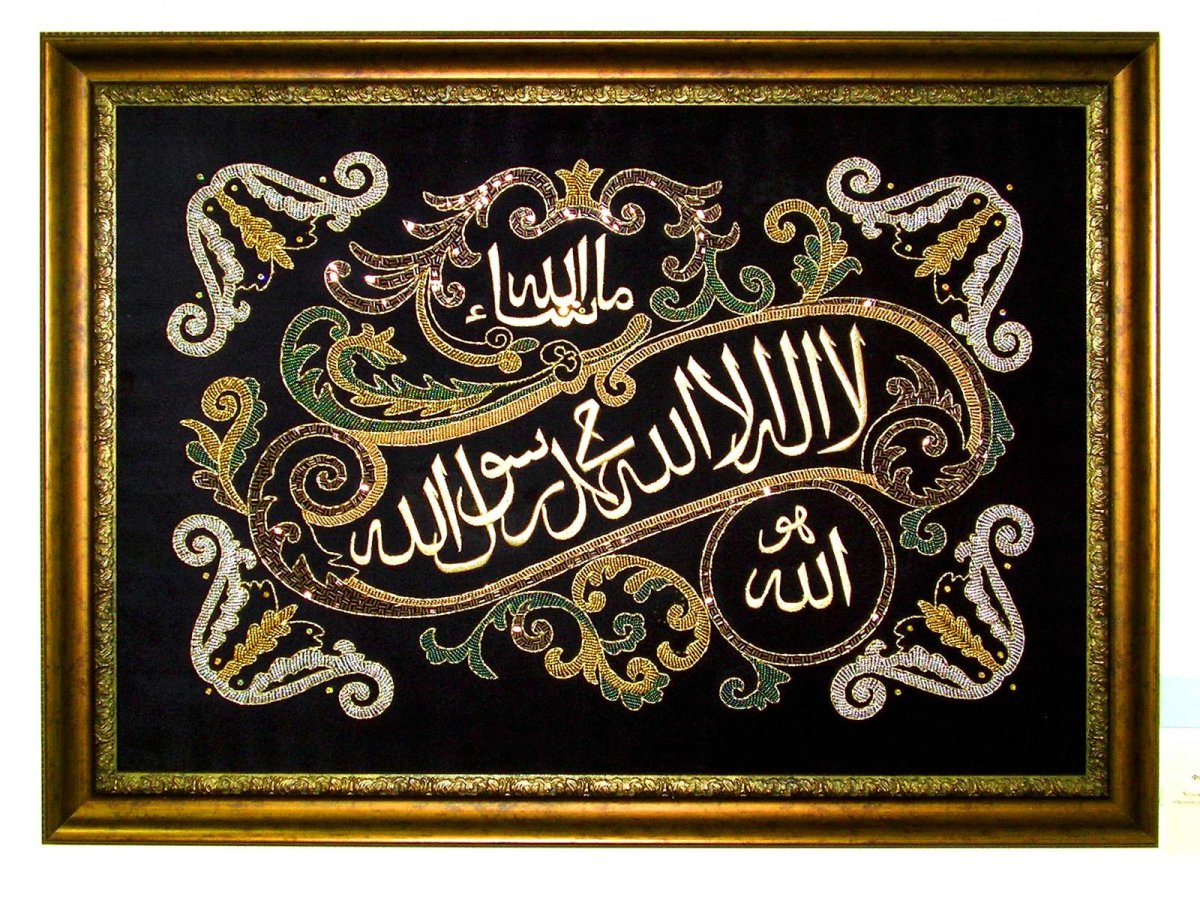 ما شاء الله
لا اله الا الله محمد رسول الله
هو الله